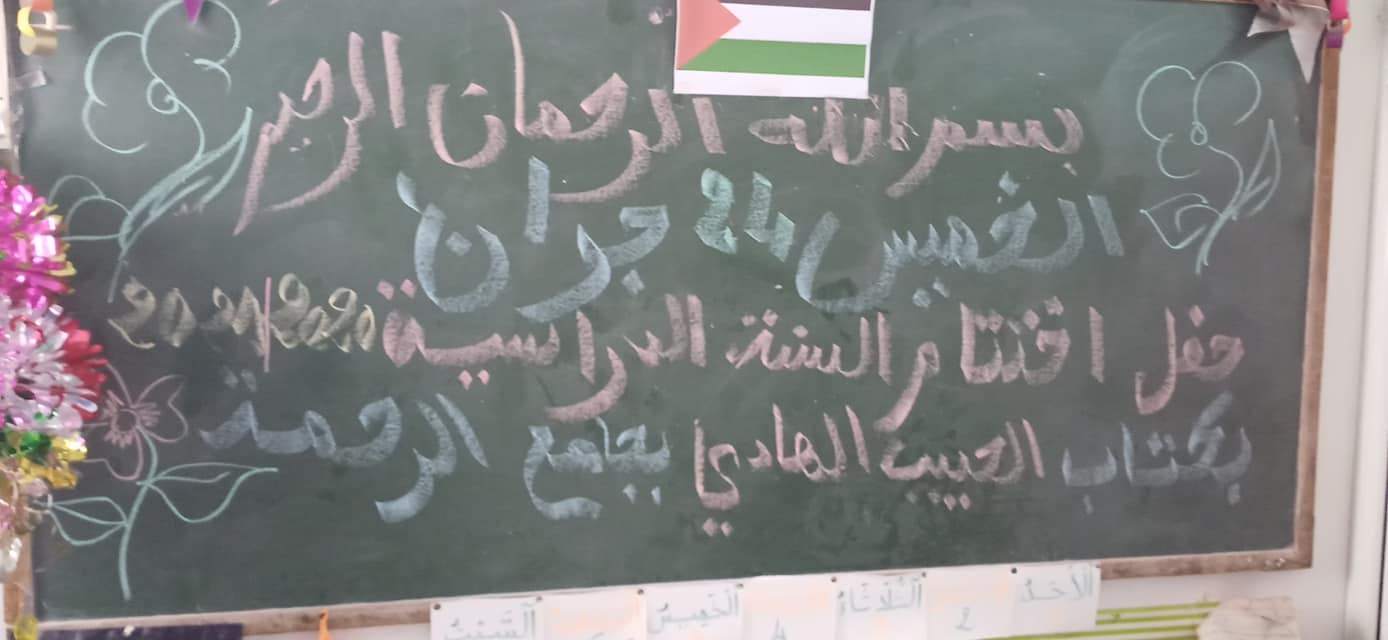 بسم الله الرحمان الرحيم
الخميس 24 جوان
حفل اختتام السنة الدراسية 2020/2021
بكتاب الحبيب الهادي بجامع الرحمة
الأحد 2 الثلاثاء 4 الخميس السبت